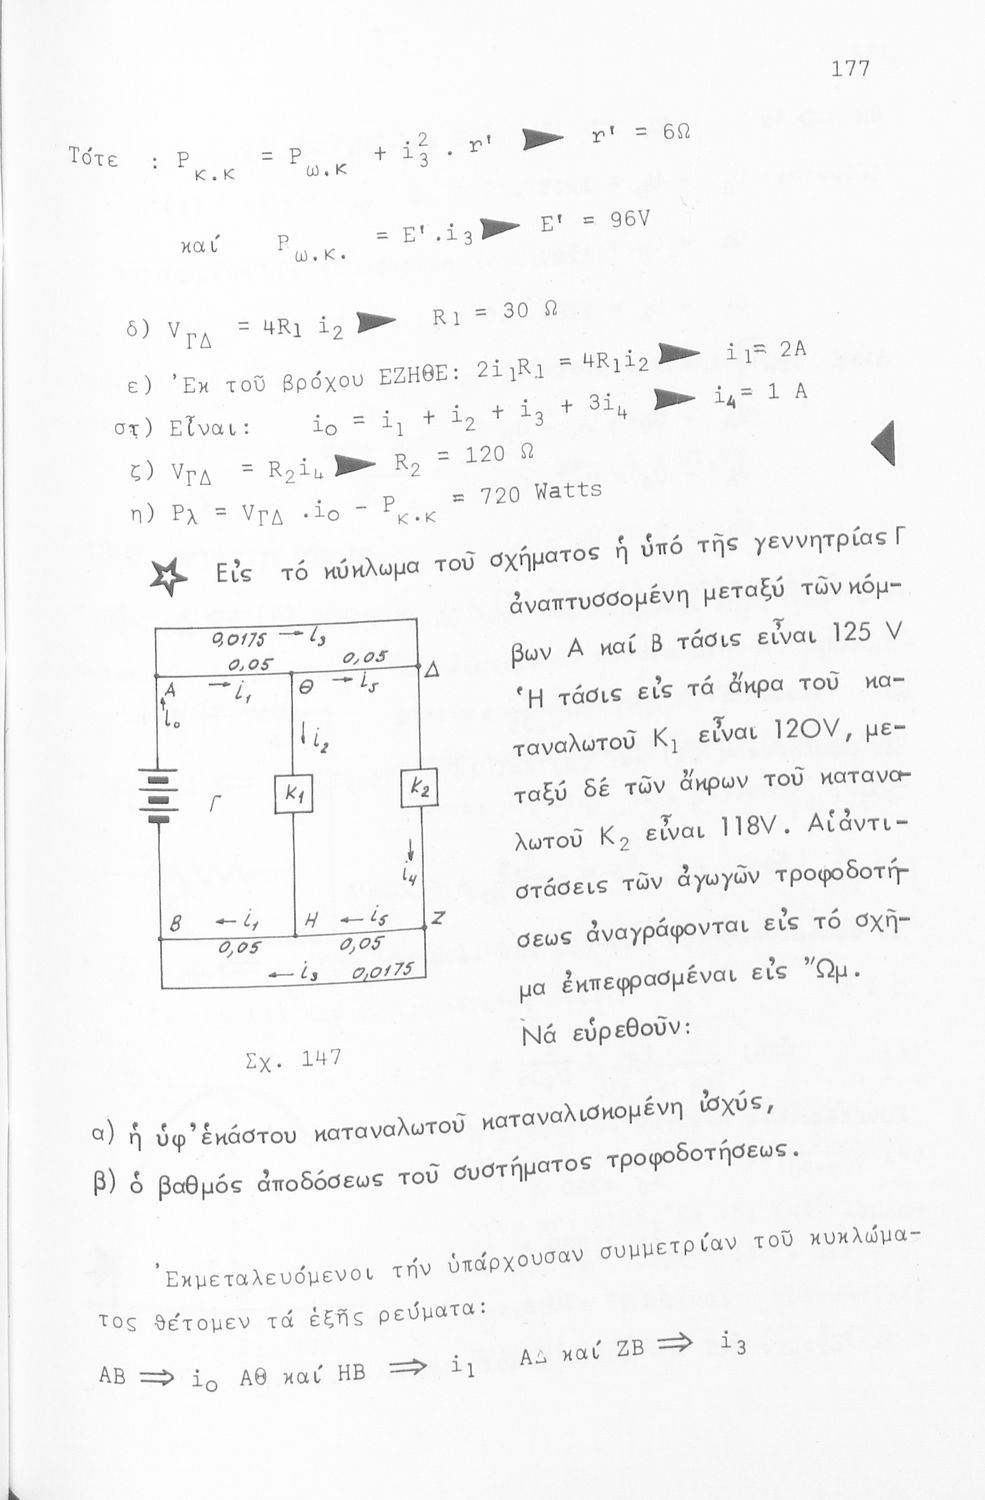 177
Τότε : P κ.κ = P ω.κ + i₃² . r' ► r' = 6Ω
καί P ω.κ. = E'.i₃ ► E' = 96V
δ) V ΓΔ = 4R₁ i₂ ► R₁ = 30 Ω
ε) Ἐκ τοῦ βρόχου ΕΖΗΘΕ: 2i₁R₁ = 4R₁i₂ ► i₁= 2A
στ) Εἶναι: i₀ = i₁ + i₂ + i₃ + 3i₄ ► i₄= 1 A
ζ) V ΓΔ = R₂i₄ ► R₂ = 120 Ω
η) Pλ = V ΓΔ .i₀ - P κ.κ = 720 Watts
Εἰς τό κύκλωμα τοῦ σχήματος ἡ ὑπό τῆς γεννητρίας Γ
ἀναπτυσσομένη μεταξύ τῶν κόμ-
βων Α καί Β τάσις εἶναι 125 V
Ἡ τάσις εἰς τά ἄκρα τοῦ κα-
ταναλωτοῦ Κ₁ εἶναι 120V, με-
ταξύ δέ τῶν ἄκρων τοῦ κατανα-
λωτοῦ Κ₂ εἶναι 118V. Αἱ ἀντι-
στάσεις τῶν ἀγωγῶν τροφοδοτή-
σεως ἀναγράφονται εἰς τό σχῆ-
μα ἐκπεφρασμέναι εἰς Ὤμ.
Νά εὑρεθοῦν:
0,0175 → i₃
0,05 0,05
A → i₁ Θ → i₅ Δ
i₀ i₂
Γ K₁ K₂
i₄
B ← i₁ H ← i₅ Z
0,05 0,05
← i₃ 0,0175
Σχ. 147
α) ἡ ὑφ' ἑκάστου καταναλωτοῦ καταναλισκομένη ἰσχύς,
β) ὁ βαθμός ἀποδόσεως τοῦ συστήματος τροφοδοτήσεως.
Ἐκμεταλευόμενοι τήν ὑπάρχουσαν συμμετρίαν τοῦ κυκλώμα-
τος θέτομεν τά ἑξῆς ρεύματα:
ΑΒ ⇒ i₀ ΑΘ καί ΗΒ ⇒ i₁ ΑΔ καί ΖΒ ⇒ i₃